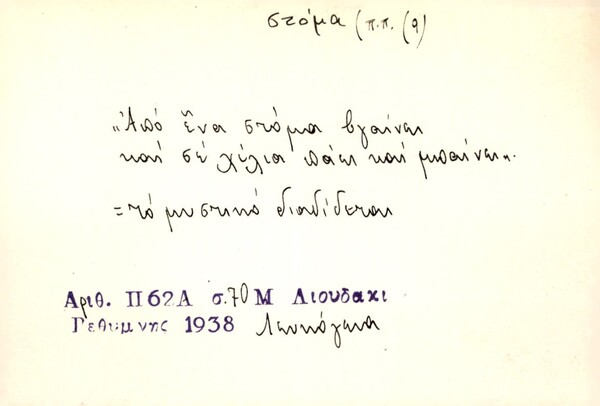 στόμα (π.π. (9)
„Ἀπό ἕνα στόμα βγαίνει
καί σέ χίλια πάει καί μπαίνει„.
=τό μυστικό διαδίδεται
Αριθ. Π62Α σ. 70 Μ Λιουδακι
Γεθυμνης 1938 Λευκόγεια